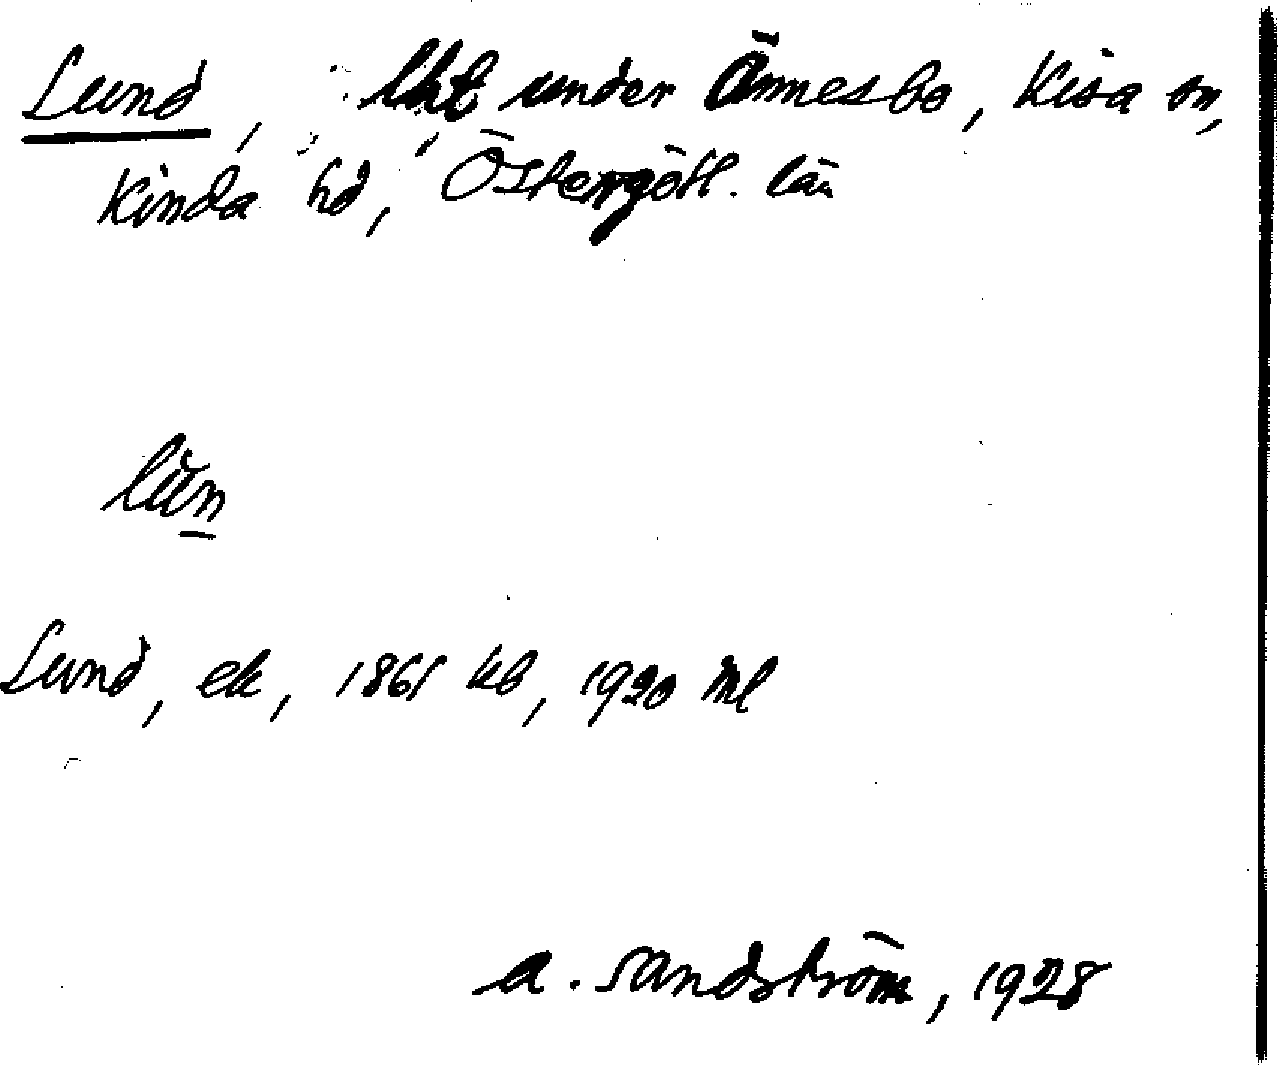 Lund, lht under Ännesbo, Kisa sn,
Kinda hd, Östergötl. län
lun
Lund, ek, 1861 kb, 1920 ml
A. Sandström, 1928